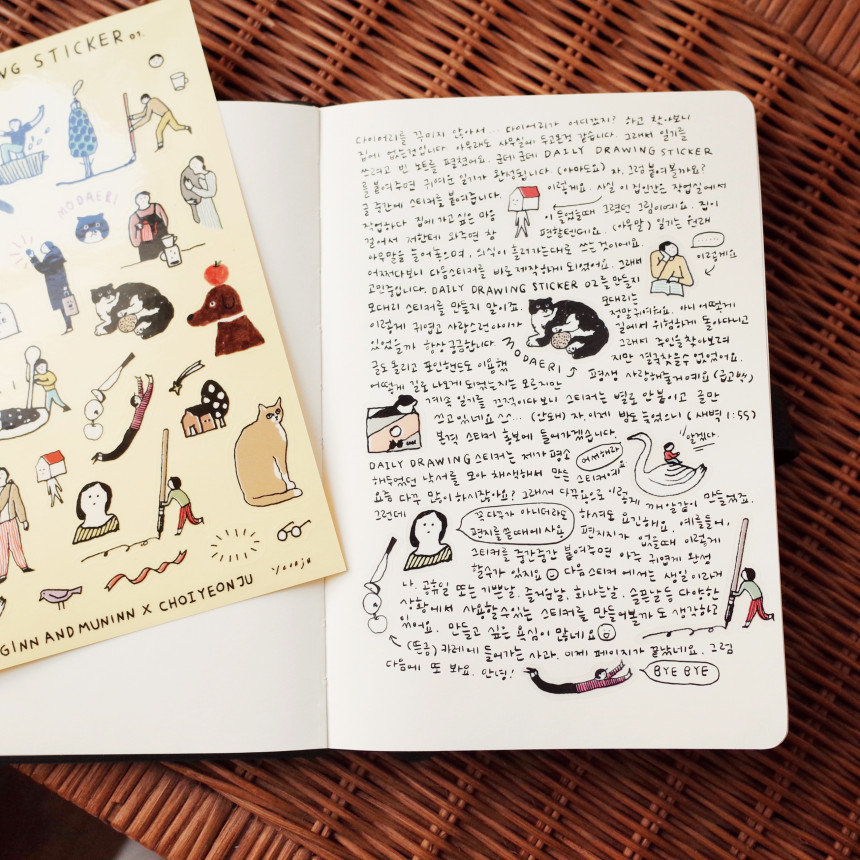 NG STICKER 01.
MODAERI
GINN AND MUNINN X CHOIYEONJU
다이어리를 꾸미지 않아서... 다이어리가 어디갔지? 하고 찾아보니
집에 없는것입니다. 아무래도 사무실에 두고온것 같습니다. 그래서 일기를
쓰려고 빈 노트를 펼쳤어요. 근데 근데 DAILY DRAWING STICKER
를 붙여주면 귀여운 일기가 완성됩니다. (아마도요) 자. 그럼 붙여볼까요?
글 중간에 스티커를 붙여줍니다. 이렇게요. 사실 이 집인간은 작업실에서
작업하다 집에 가고 싶은 마음이 들었을때 그렸던 그림이에요. 집이
걸어서 저한테 와주면 참 편할텐데요. (아무말) 일기는 원래
아무말을 늘어놓으며, 의식이 흘러가는대로 쓰는 것이에요.
이렇게요
어쩌다보니 다음스티커를 바로 제작하게 되었어요. 그래서
고민중입니다. DAILY DRAWING STICKER 02를 만들지
모대리 스티커를 만들지 말이죠. 모대리는
이렇게 귀엽고 사랑스런 아이가 정말 귀여워요. 아니 어떻게
있었을까 항상 궁금합니다. 길에서 위험하게 돌아다니고
MODAERI
그래서 주인을 찾아보려
글도 올리고 포인핸드도 이용했지만 결국 찾을수 없었어요.
어떻게 길로 나오게 되었는지는 모르지만 평생 사랑해줄게예요 (급고백)
계속 일기를 끄적이다보니 스티커는 별로 안붙이고 글만
쓰고있네요 ㅅㅅ... (안돼) 자, 이제 밤도 늦었으니 (새벽 1:55)
본격 스티커 홍보에 들어가겠습니다.
어서해라
알겠다.
DAILY DRAWING 스티커는 제가 평소
해두었던 낙서를 모아 채색해서 만든 스티커예요
요즘 다꾸 많이 하시잖아요? 그래서 다꾸용으로 이렇게 깨알같이 만들었죠.
그런데 꼭 다꾸가 아니더라도
편지를 쓸때에 사용
하셔도 요긴해요. 예를들어,
편지지가 없을때 이렇게
스티커를 중간중간 붙여주면 아주 귀엽게 완성
할수가 있지요 다음 스티커에서는 생일이라거
나, 공휴일 또는 기쁜날, 즐거운날, 화나는날, 슬픈날등 다양한
상황에서 사용할수있는 스티커를 만들어볼까도 생각하고
있어요. 만들고 싶은 욕심이 많네요
(뜬금) 카레에 들어가는 사과. 이제 페이지가 끝났네요. 그럼
다음에 또 봐요. 안녕!
BYE BYE